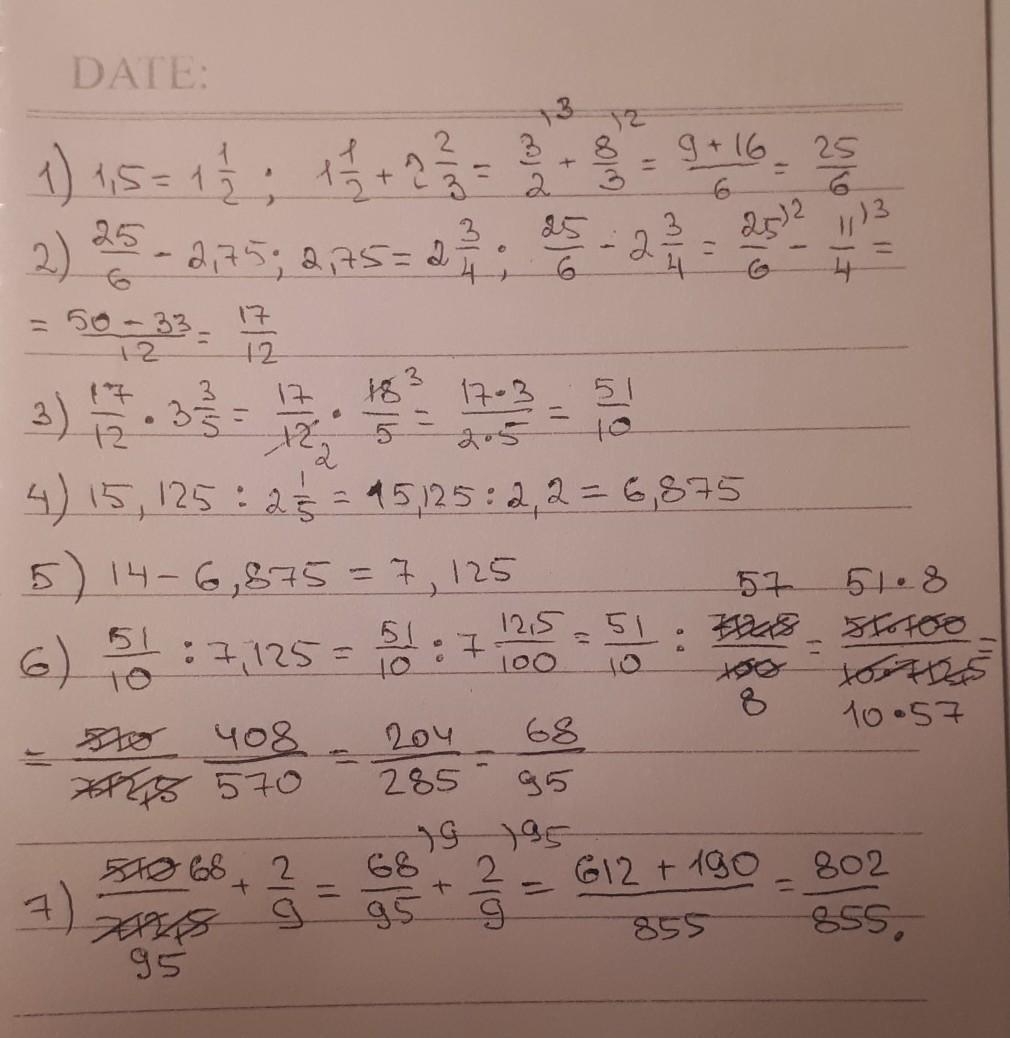 DATE:
1) 1,5 = 1 1/2 ; 1 1/2 + 2 2/3 = 3/2 ⁾³ + 8/3 ⁾² = (9 + 16)/6 = 25/6
2) 25/6 - 2,75; 2,75 = 2 3/4 ; 25/6 - 2 3/4 = 25/6 ⁾² - 11/4 ⁾³ =
= (50 - 33)/12 = 17/12
3) 17/12 · 3 3/5 = 17/12 2 · 18/5 3 = (17·3)/(2·5) = 51/10
4) 15,125 : 2 1/5 = 15,125 : 2,2 = 6,875
5) 14 - 6,875 = 7,125
6) 51/10 : 7,125 = 51/10 : 7 12,5/100 = 51/10 : 57/8 = (51·8)/(10·57) =
= 408/570 = 204/285 = 68/95
7) 68/95 + 2/9 = 68/95 ⁾⁹ + 2/9 ⁾⁹⁵ = (612 + 190)/855 = 802/855.